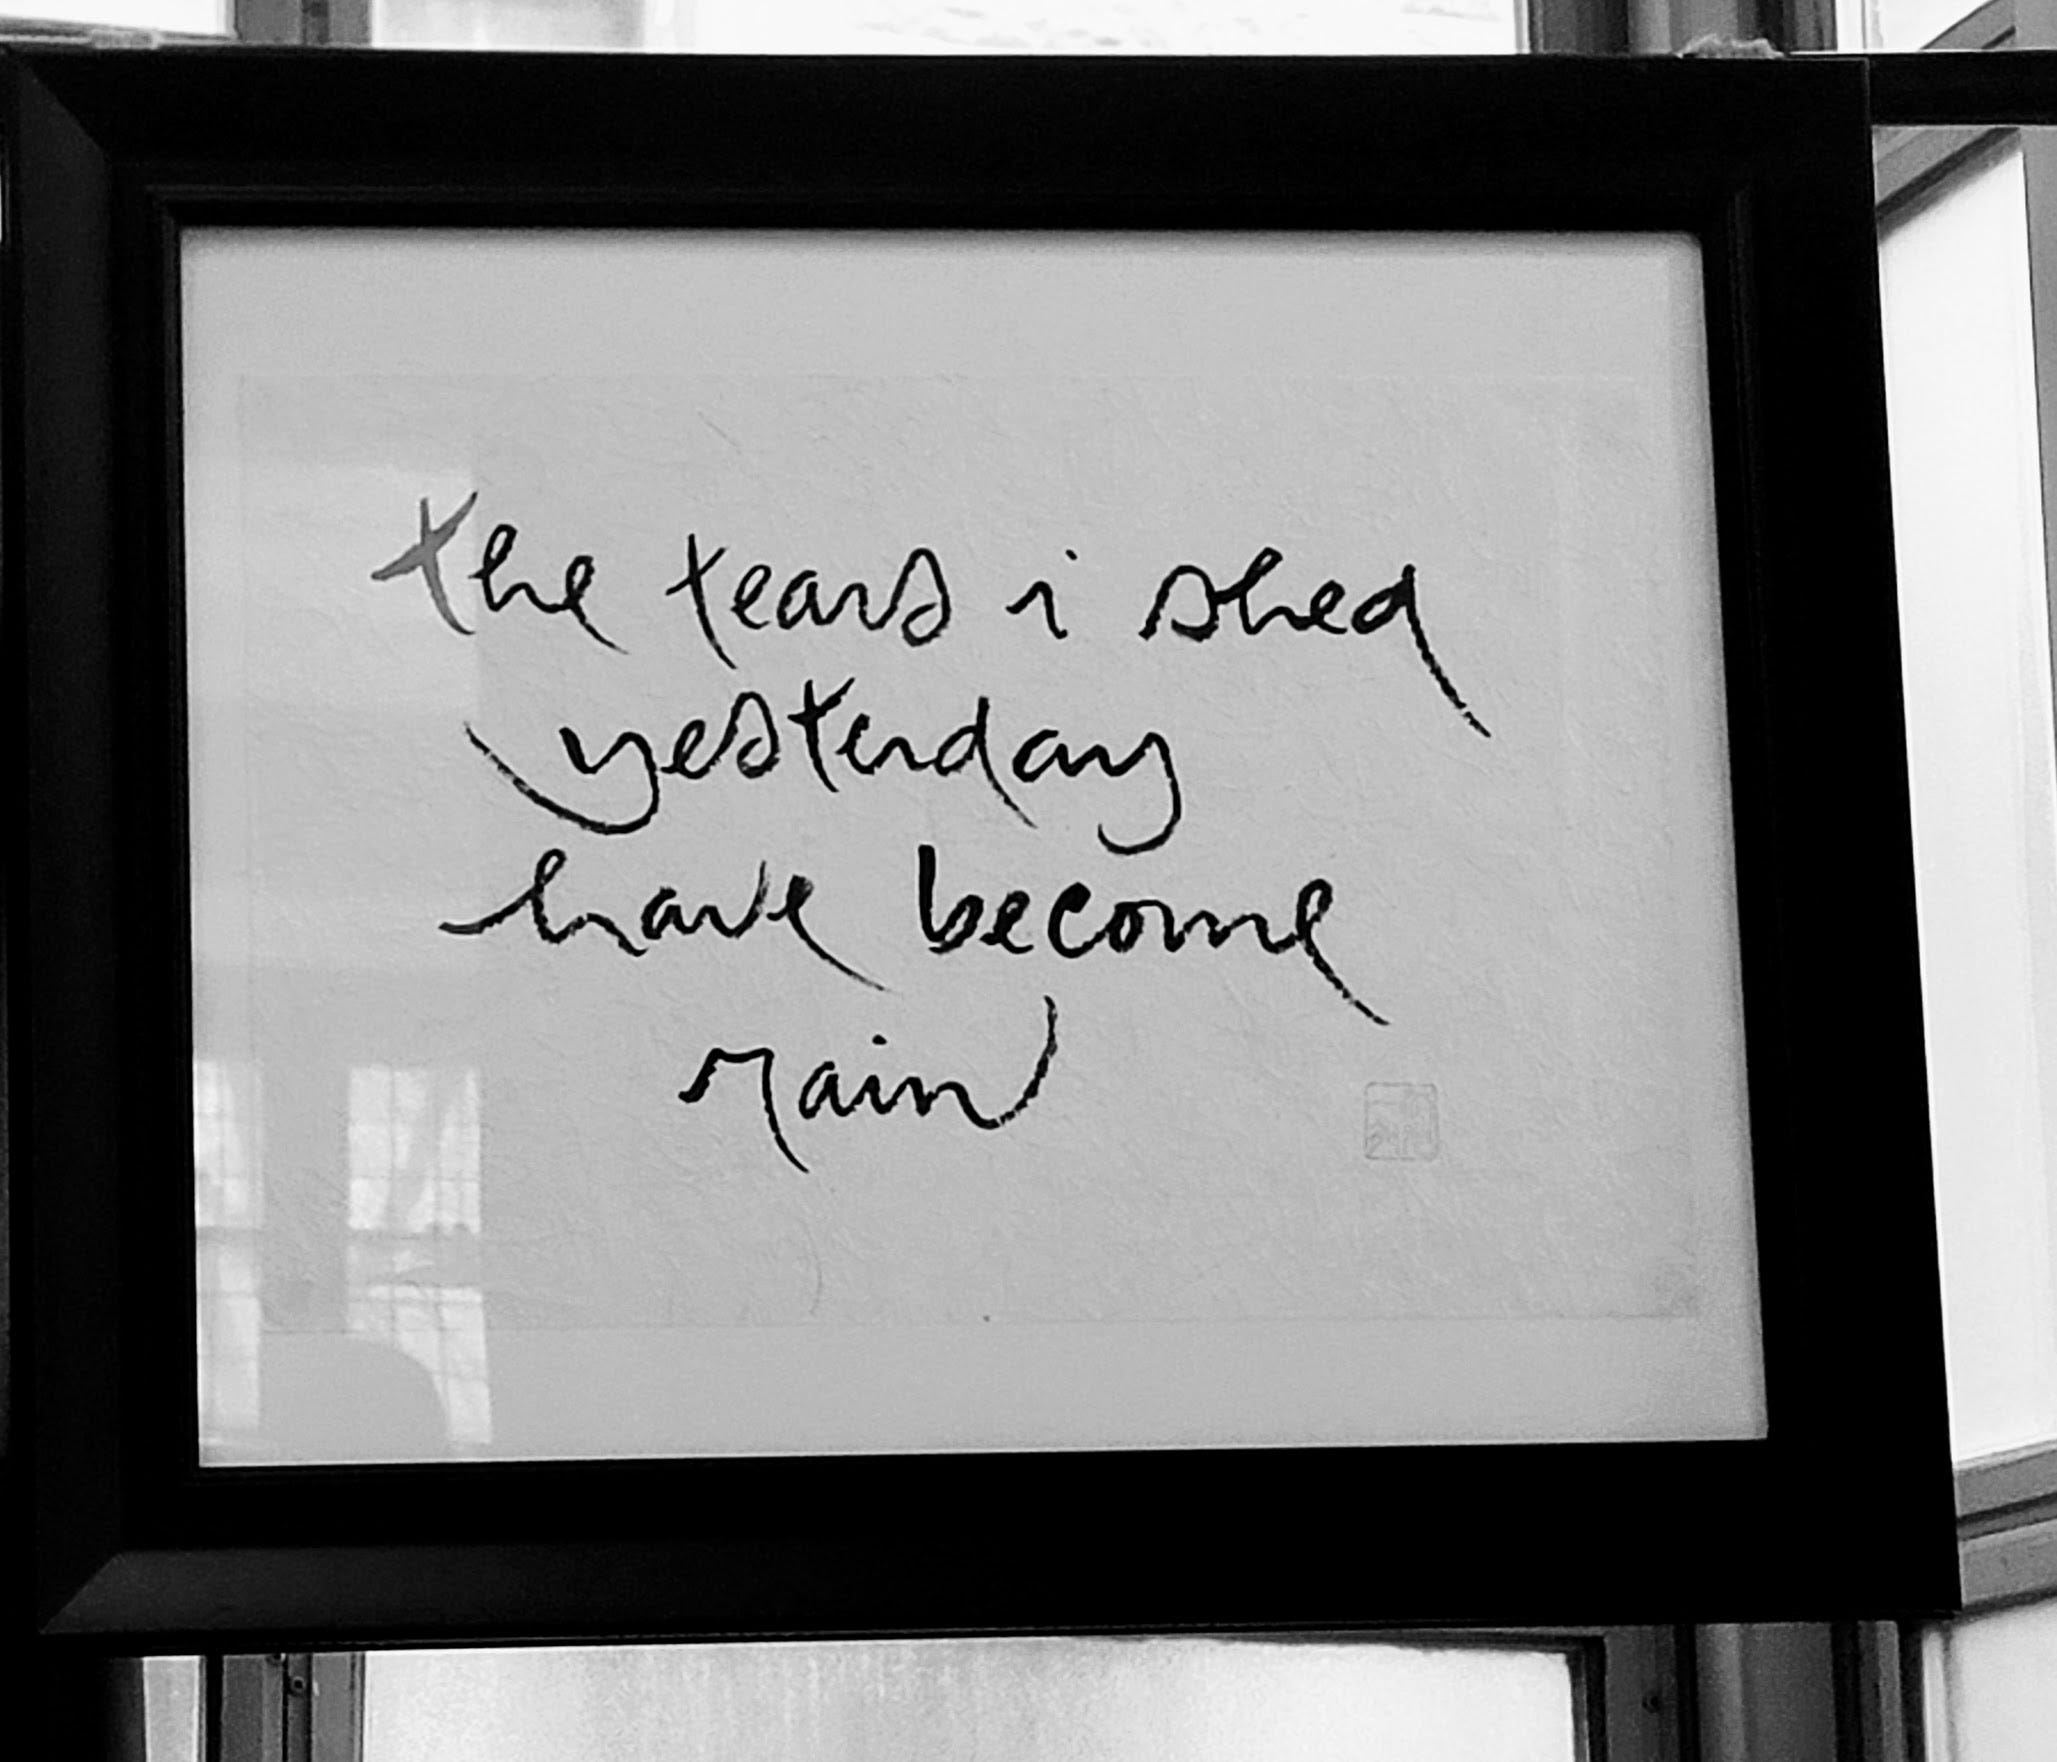 the tears i shed
yesterday
have become
rain